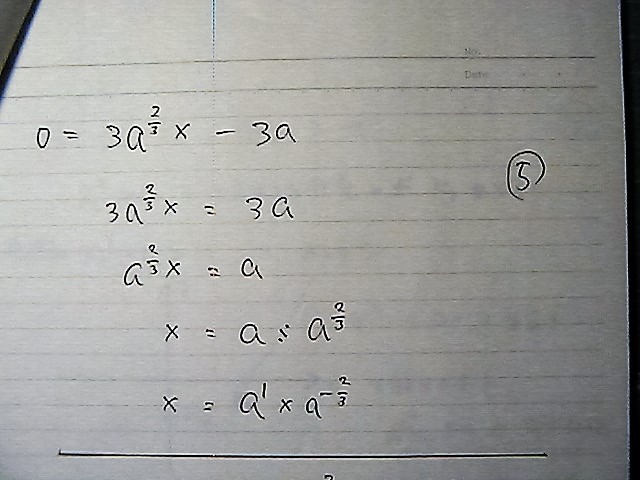 No.
Date
0 = 3a^{2/3} x - 3a
⑤
3a^{2/3} x = 3a
a^{2/3} x = a
x = a ÷ a^{2/3}
x = a^1 × a^{-2/3}